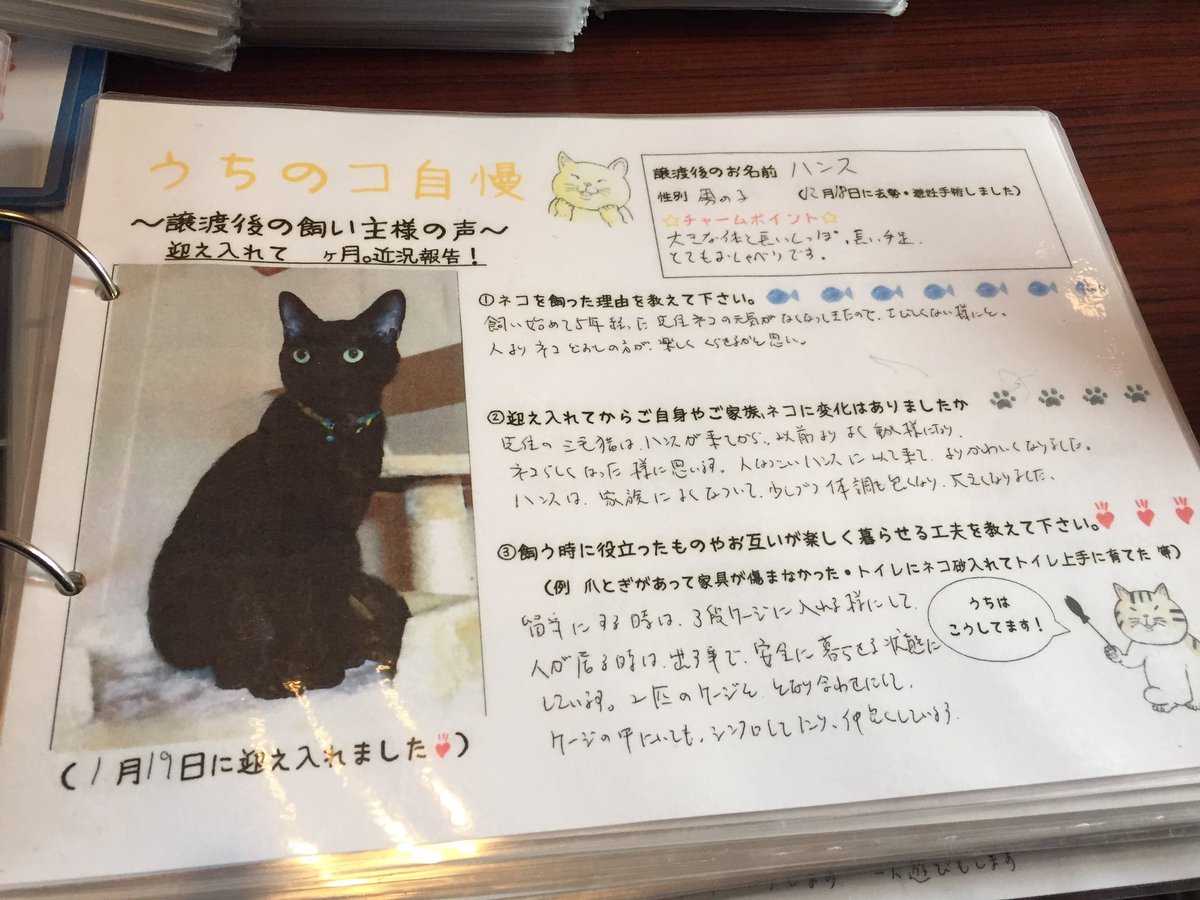 うちのコ自慢
～譲渡後の飼い主様の声～
迎え入れて ヶ月。近況報告！
譲渡後のお名前 ハンス
性別 男の子 (12月18日に去勢・避妊手術しました)
☆チャームポイント☆
大きな体と長いしっぽ、長い手足、
とてもおしゃべりです。
①ネコを飼った理由を教えて下さい。
飼い始めて5年経った先住ネコの元気がなくなってきたので、さびしくない様にと。
人よりネコどおしの方が、楽しくくらせるかと思い。
②迎え入れてからご自身やご家族、ネコに変化はありましたか
先住の三毛猫は、ハンスが来てから、以前よりよく動く様になり、
ネコらしくなった様に思います。人なつこいハンスに似て来て、よりかわいくなりました。
ハンスは、家族によくなついて、少しづつ体調も良くなり、大きくなりました。
③飼う時に役立ったものやお互いが楽しく暮らせる工夫を教えて下さい。
(例 爪とぎがあって家具が傷まなかった・トイレにネコ砂入れてトイレ上手に育てた 等)
留守にする時は、3段ケージに入れる様にして、
人が居る時は、出る事で、安全に暮らせる状態に
しています。2匹のケージを となり合わせにして、
ケージの中にいても、シンクロしてたり、仲良くしている。
うちは
こうしてます！
(1月19日に迎え入れました)
一人遊びもします